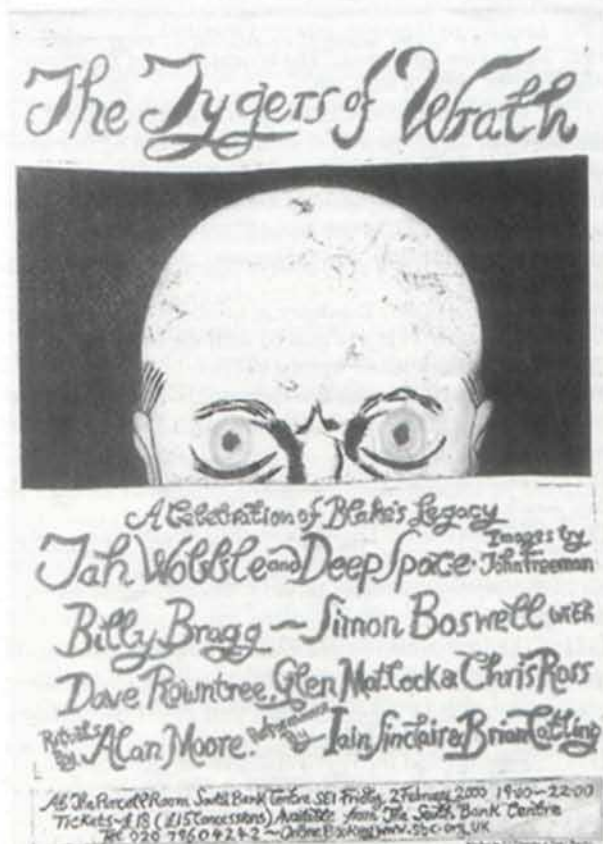 The Tygers of Wrath
A Celebration of Blake's Legacy
Images by
Jah Wobble and Deep Space · John Freeman
Billy Bragg ~ Simon Boswell with
Dave Rowntree, Glen Matlock & Chris Ross
Rituals by Alan Moore. Performance by ~ Iain Sinclair & Brian Catling
At The Purcell Room South Bank Centre SE1 Friday, 2 February 2000 19:00~22:00
Tickets ~ £18 (£15 Concessions) Available from The South Bank Centre
Tel 020 7960 4242 ~ Online Booking www.sbc.org.uk